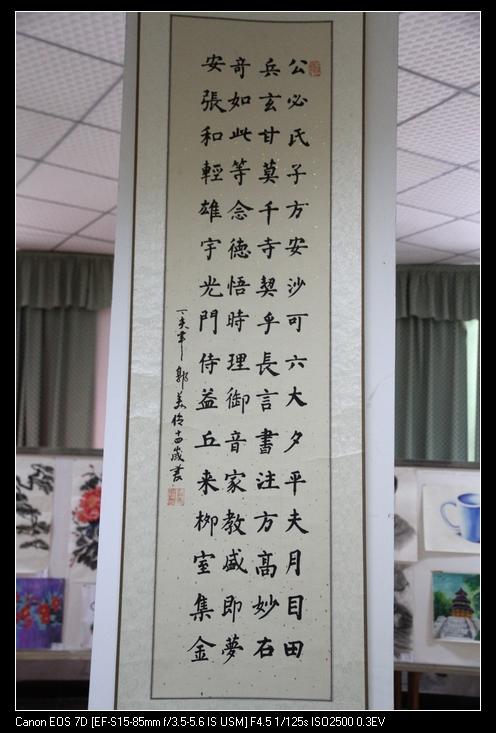 公必氏子方安沙可六大夕平夫月目田
兵玄甘莫千寺契乎長言書注方高妙右
奇如此等念德悟時理御音家教盛即夢
安張和輕雄宇光門侍益丘来柳室集金
郭美伶十四歲書
Canon EOS 7D [EF-S15-85mm f/3.5-5.6 IS USM] F4.5 1/125s ISO2500 0.3EV